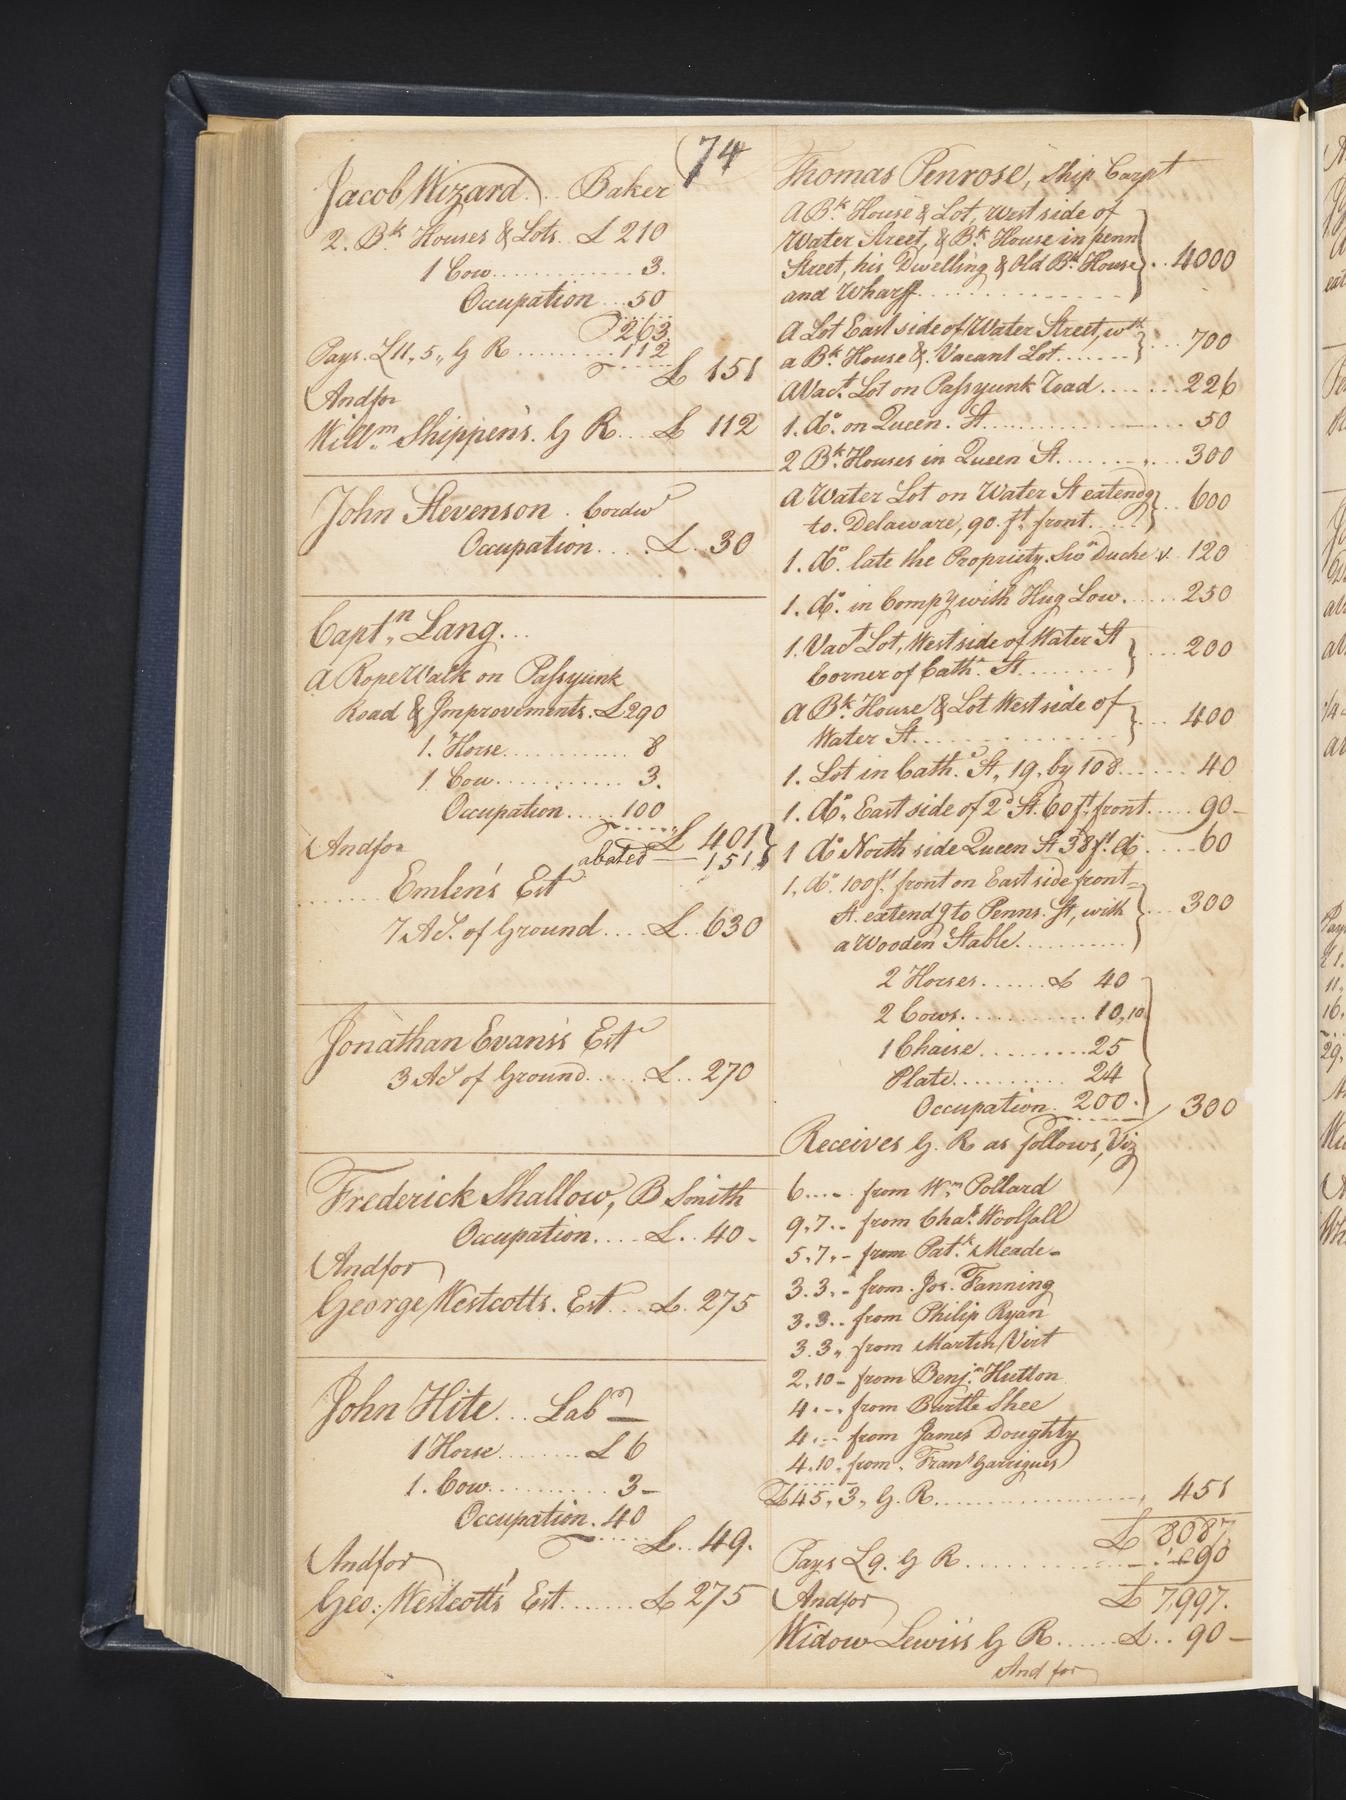 74
Jacob Wizard... Baker
2. Bk. Houses & Lots.. £ 210
1 Cow.............. 3.
Occupation... 50
263
Pays. £11,,5,, G R.......... 112
£ 151
Andfor
Willm. Shippen's. G R... £ 112
John Stevenson. Cordwr
Occupation..... £. 30
Captn. Lang...
A Rope Walk on Passyunk
Road & Improvements. £290
1. Horse............ 8
1 Cow............. 3.
Occupation..... 100
£ 401
Andfor
abated — 151
....... Emlen's Est
7 As. of Ground.... £.. 630
Jonathan Evans's Est
3 As of Ground...... £.. 270
Frederick Shallow, B Smith
Occupation..... £.. 40-
Andfor
George Westcotts. Est.... £. 275
John Hite... Labr
1 Horse........ £ 6
1. Cow........... 3-
Occupation. 40
£.. 49.
Andfor
Geo: Westcott's Est....... £ 275
Thomas Penrose, Ship Carpt
A Bk. House & Lot, west side of
Water Street, & Bk. House in penn
Street, his Dwelling & Old Bk. House
and Wharff................ 4000
A Lot East side of Water Street, wth
a Bk. House & Vacant Lot......... 700
A Vact. Lot on Passyunk Road....... 226
1. do. on Queen. St.................. 50
2 Bk. Houses in Queen St............ 300
A Water Lot on Water St extendg
to. Delaware, 90. ft. front...... 600
1. do. late the Propriety. Duche 120
1. do. in Compy with Hug Low...... 250
1. Vact Lot, West side of Water St
Corner of Cath. St.......... 200
A Bk. House & Lot West side of
Water St.................. 400
1. Lot in Cath. St, 19, by 108...... 40
1. do, East side of 2d St. 60 ft. front..... 90-
1 do North side Queen St 38 ft. do.... 60
1, do. 100 ft. front on East side front=
St. extendg to Penns. St, with
a Wooden Stable.......... 300
2 Horses...... £ 40
2 Cows............ 10,10
1 Chaise.......... 25
Plate.......... 24
Occupation. 200.
300
Receives G. R as follows, Viz
6..... from Wm. Pollard
9,7.. from Chas. Woolfall
5,7,- from Patk. Meade-
3.3.- from. Jos. Fanning
3.3.. from Philip Ryan
3.3,, from Martin Virt
2,10- from Benjn. Hutton
4.-. from Burtle Shee
4.-- from James Doughty
4.10. from. Frans Garrigues
£45,3,, G. R................... 451
£ 8087
Pays £9. G R................ 90
£ 7,997.
Andfor
Widow Lewis's G R...... £.. 90-
And for